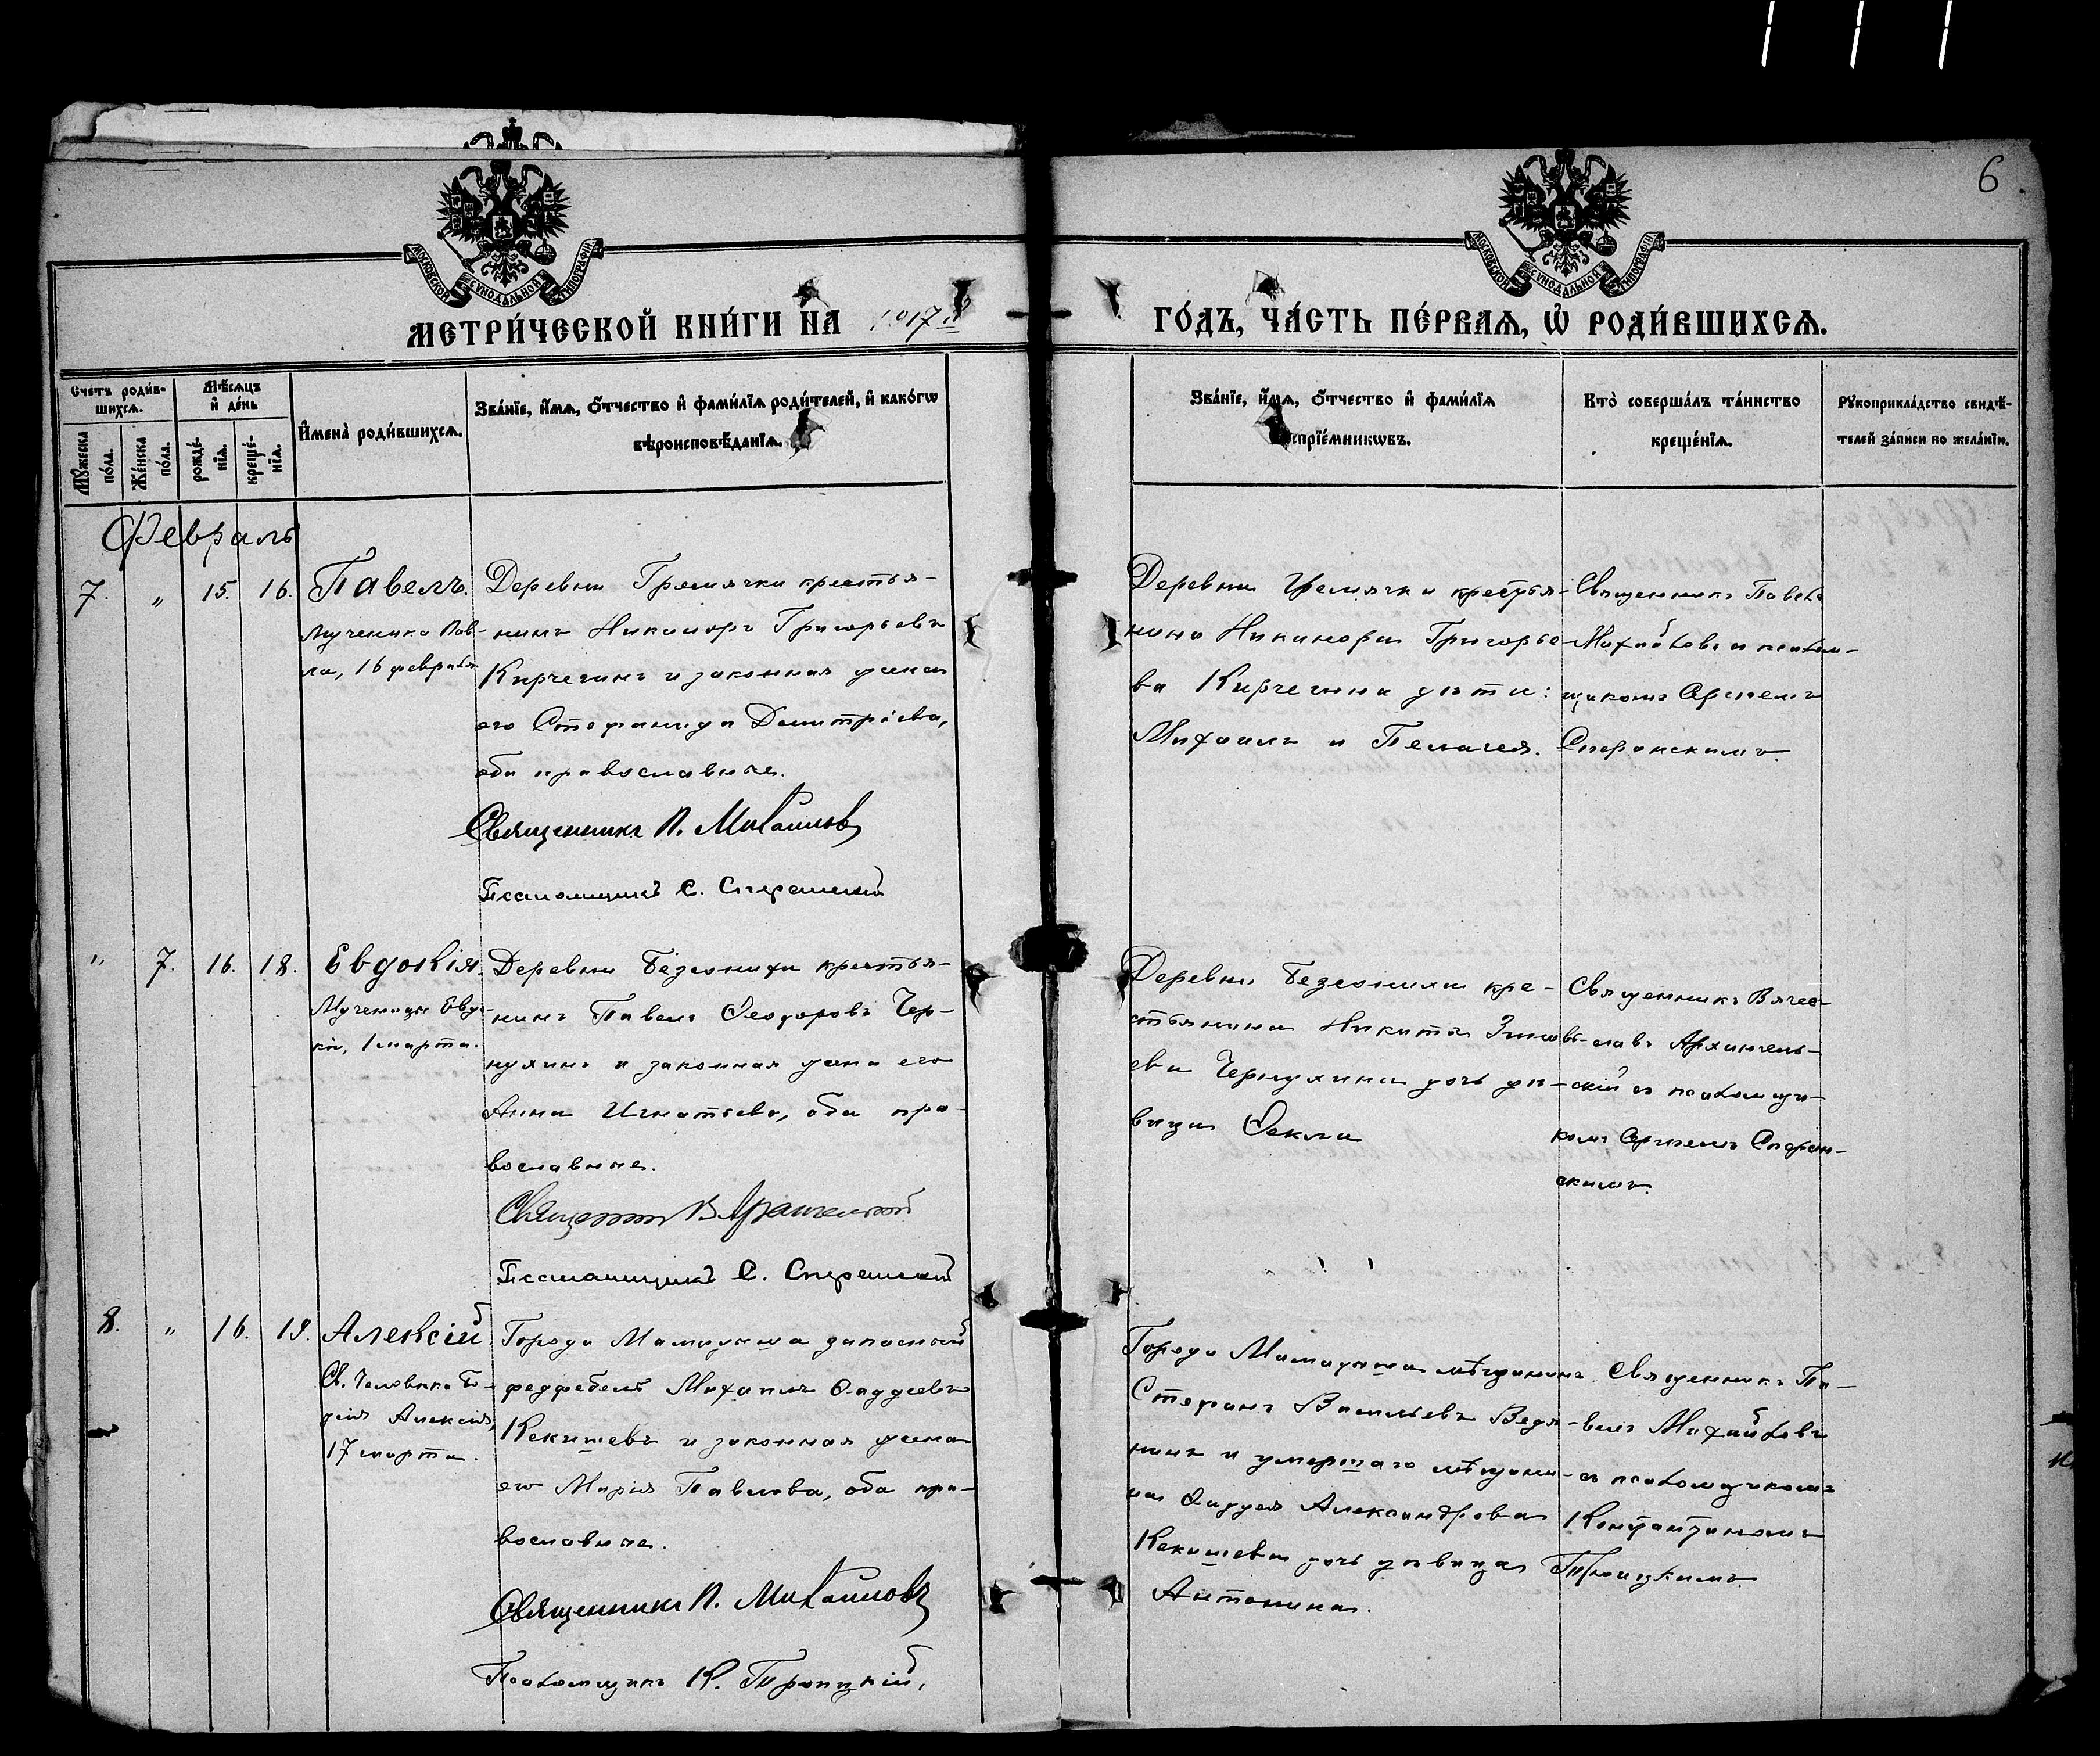 6
МОСКОВСКОЙ СУНОДАЛЬНОЙ ТИПОГРАФІИ
МОСКОВСКОЙ СУНОДАЛЬНОЙ ТИПОГРАФІИ
МЕТРИ́ЧЕСКОЙ КНИ́ГИ НА 1917 й
ГО́ДЪ, ЧА́СТЬ ПЕ́РВАЯ, Ѿ РОДИ́ВШИХСЯ.
Счетъ роди́в-
шихся.
Мѣсяцъ
и де́нь
Мꙋжеска
по́ла.
Же́нска
по́ла.
рожде́-
нїя.
креще́-
нїя.
И҆мена̀ роди́вшихся.
Зва́нїе, и҆́мя, ѻ҆́тчество и҆ фами́лїя роди́телей, и҆ како́гѡ
вѣроисповѣ́данїя.
Зва́нїе, и҆́мя, ѻ҆́тчество и҆ фами́лїя
спрїе́мникѡвъ.
Кто̀ соверша́лъ та́инство
креще́нїя.
Рꙋкоприкла́дство свидѣ́-
телей за́писи по жела́нїю.
Февраль
7. „ 15. 16.
Павелъ.
Мученика Пав-
ла, 16 февраля
Деревни Гремячки крестья-
нинъ Никаноръ Григорьевъ
Кирчегинъ и законная жена
его Стефанида Димитріева,
оба православные.
Священникъ П. Михайловъ
Псаломщикъ С. Сперанскій
Деревни Гремячки крестья-
нина Никанора Григорье-
ва Кирчегина дѣти:
Михаилъ и Пелагея.
Священникъ Павелъ
Михайловъ и псалом-
щикомъ Сергіемъ
Сперанскимъ.
„ 7. 16. 18.
Евдокія.
Мученицы Евдо-
кіи, 1 марта.
Деревни Безсонихи крестья-
нинъ Павелъ Ѳеодоровъ Чер-
нухинъ и законная жена его
Анна Игнатьева, оба пра-
вославные.
Священникъ В. Архангельскій
Псаломщикъ С. Сперанскій
Деревни Безсонихи кре-
стьянина Никиты Зиновь-
ева Чернухина дочь дѣ-
вица Ѳекла
Священникъ Вячес-
лавъ Архангель-
скій съ псаломщи-
комъ Сергіемъ Сперан-
скимъ.
8. „ 16. 19.
Алексій
Св. Человѣка Бо-
жія Алексія,
17 марта.
Города Мамадыша запасный
фельдфебель Михаилъ Ѳаддеевъ
Кекишевъ и законная жена
его Марія Павлова, оба пра-
вославные.
Священникъ П. Михайловъ
Псаломщикъ К. Троицкій,
Города Мамадыша мѣщанинъ
Стефанъ Васильевъ Ведя-
нинъ и умершаго мѣщани-
на Ѳаддея Александрова
Кекишева дочь дѣвица
Антонина.
Священникъ Па-
велъ Михайловъ
съ псаломщикомъ
Константиномъ
Троицкимъ.